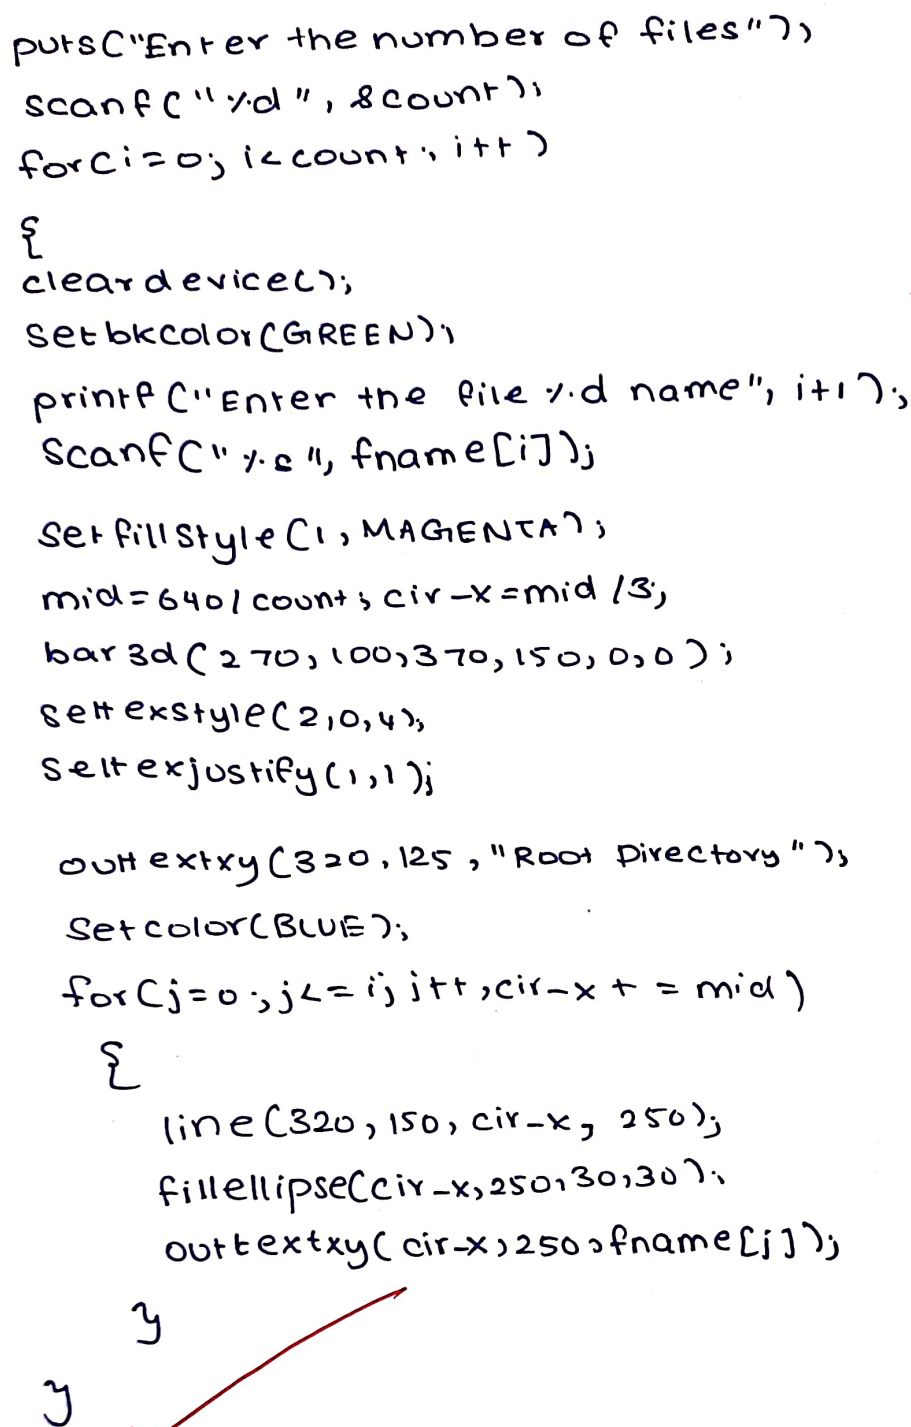 puts("Enter the number of files");
scanf("%d", &count);
for(i=0; i<count; i++)
{
cleardevice();
setbkcolor(GREEN);
printf("Enter the file %d name", i+1);
scanf("%s", fname[i]);
setfillstyle(1, MAGENTA);
mid=640/count; cir_x=mid/3;
bar3d(270,100,370,150,0,0);
settexstyle(2,0,4);
settexjustify(1,1);
outtextxy(320,125,"Root Directory");
setcolor(BLUE);
for(j=0;j<=i;j++,cir_x + = mid)
{
line(320,150,cir_x, 250);
fillellipse(cir_x,250,30,30);
outtextxy(cir_x,250,fname[j]);
}
}